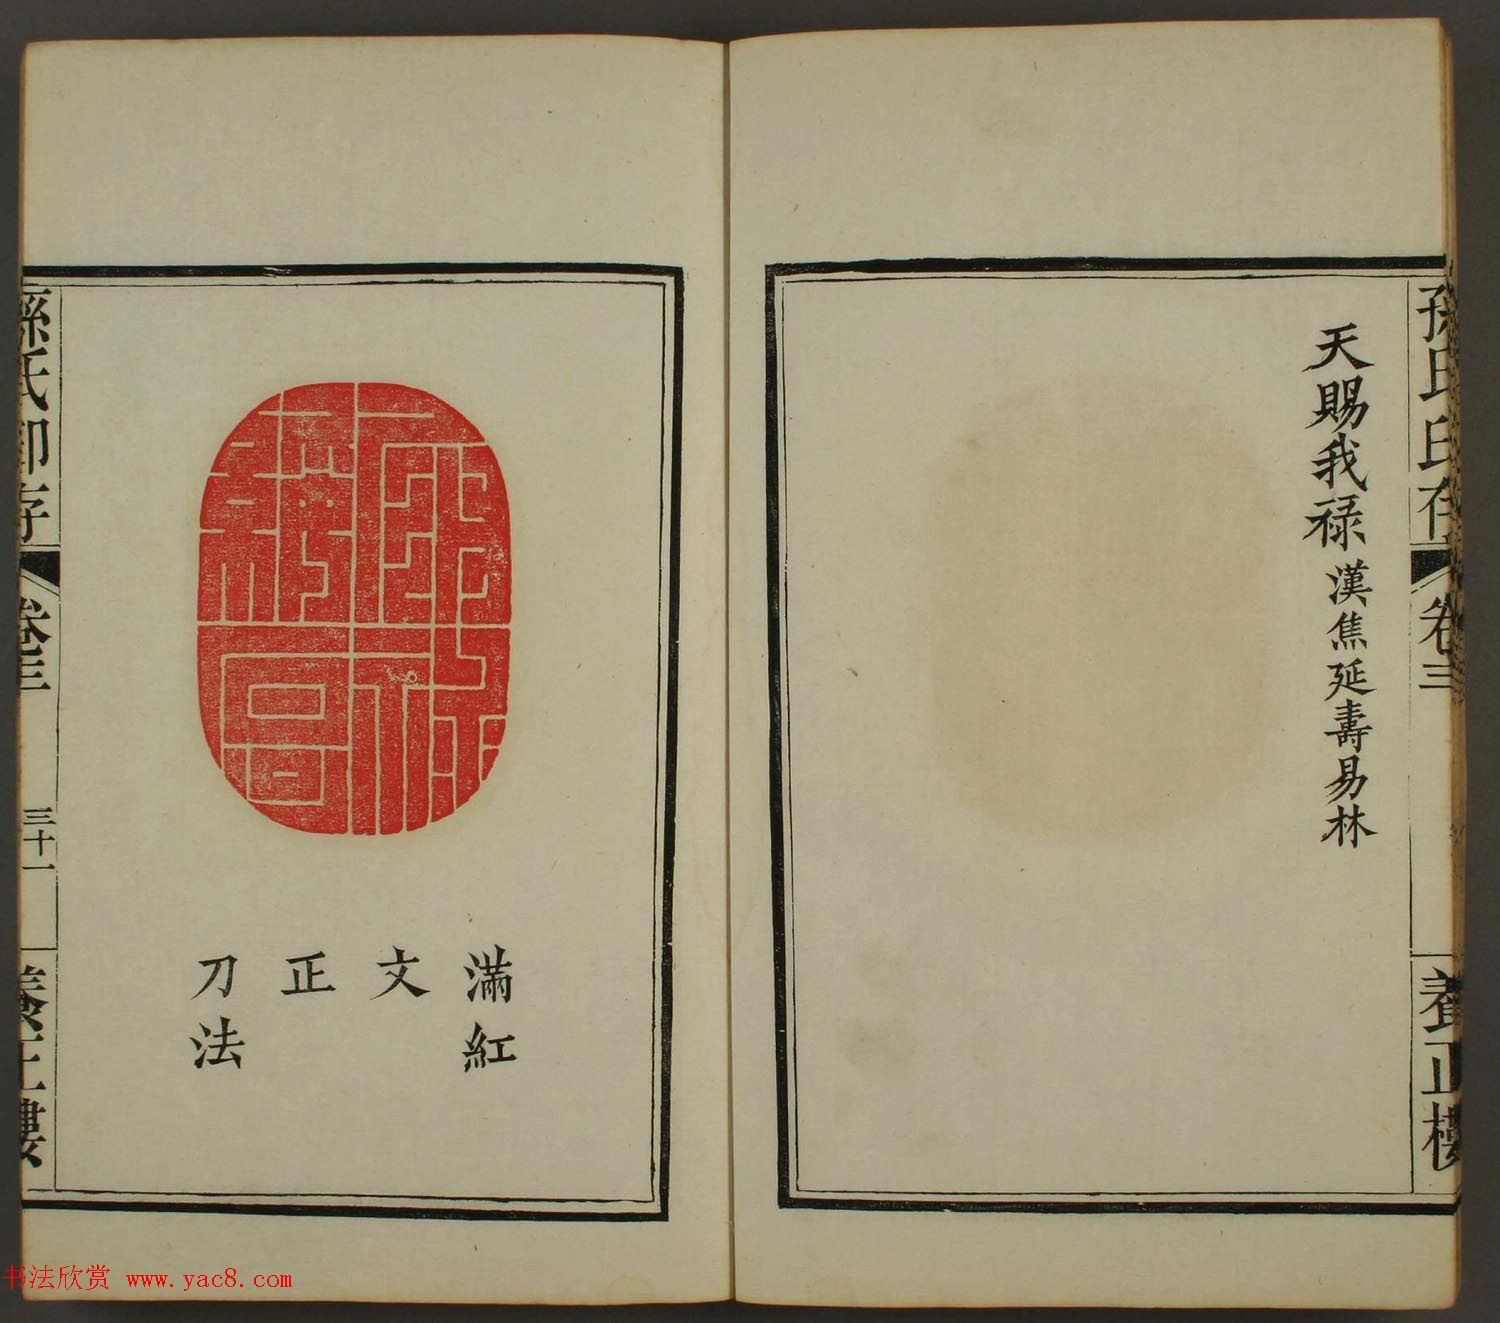 孫氏印存 卷三 養正樓
天賜我禄 漢焦延壽易林
滿紅
文
正
刀法
孫氏印存 卷三 三十一 養正樓
书法欣赏 www.yac8.com